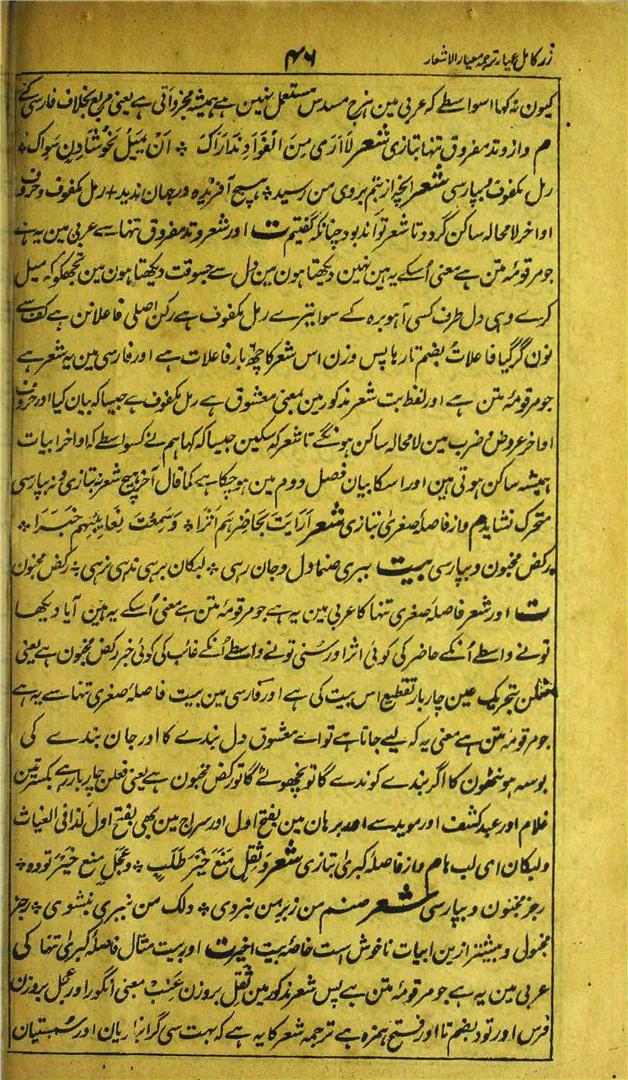 زر کامل عیار ترجمہ معیار الاشعار ۴۶
کیون نہ کہا اسواسطے کہ عربی مین ہزج مسدس مستعمل نہین ہے ہمیشہ مجزو آتی ہے یعنی مربع بخلاف فارسی کے
م واز وتد مفروق تنہا بتازی شعر لا اری من الفواد نداراک ٭ ان یمیل نحو شادن سواک ٭
رمل مکفوف و بپارسی شعر انچہ از بتم بروی من رسید ٭ ہیچ آفریدہ در جہان ندید + رمل مکفوف و حروف
اواخر لا محالہ ساکن گردد تا شعر تواند بود چنانکہ گفتیم ت اور شعر وتد مفروق تنہا سے عربی مین یہ ہے
جو مرقومۂ متن ہے معنی اُسکے یہ ہین نہین دیکھتا ہون مین دل سے جسوقت دیکھتا ہون مین تجھکو کہ میل
کرے وہی دل طرف کسی آہوبرہ کے سوا تیرے رمل مکفوف ہے رکن اصلی فاعلاتن ہے کف سے
نون گر گیا فاعلاتُ بضم تا رہا پس وزن اس شعر کا چھہ بار فاعلات ہے اور فارسی مین یہ شعر ہے
جو مرقومۂ متن ہے اور لفظ بت شعر مذکور مین بمعنی معشوق ہے رمل مکفوف ہے جیسا کہ بیان کیا اور حروف
اواخر عروض و ضرب مین لا محالہ ساکن ہونگے تا شعر کہ سکین جیسا کہ کہا ہم نے کسواسطے کہ اواخر ابیات
ہمیشہ ساکن ہوتی ہین اور اسکا بیان فصل دوم مین ہو چکا ہے کما قال آخر ہیچ شعر نہ بتازی و نہ بپارسی
متحرک نشاید م واز فاصلۂ صغری بتازی شعر ارایت بحاضرہم اثرا ٭ وسمعت بغائبہم خبرا ٭
رکض مخبون و بپارسی بیت ببری صنما دل و جان رہی ٭ لبکان برہی ندہی نرہی ٭ رکض مخبون
ت اور شعر فاصلۂ صغری تنہا کا عربی مین یہ ہے جو مرقومۂ متن ہے معنی اُسکے یہ ہین آیا دیکھا
تو نے واسطے اُنکے حاضر کی کوئی اثر اور سنی تو نے واسطے اُنکے غائب کی کوئی خبر رکض مخبون ہے یعنی
فعلن بتحریک عین چار بار تقطیع اس بیت کی ہے اور فارسی مین بیت فاصلۂ صغری تنہا سے یہ ہے
جو مرقومۂ متن ہے معنی یہ کہ لیے جاتا ہے تو اے معشوق دل بندے کا اور جان بندے کی
بوسہ ہونٹھون کا اگر بندے کو ندے گا تو نچھوٹے گا تو رکض مخبون ہے یعنی فعلن چار بار رہے بکسرتین
غلام اور عبد کشف اور موید سے اور برہان مین بفتح اول اور سراج مین بھی بفتح اول کذا فی الغیاث
و لبکان ای لب ہا م واز فاصلۂ کبری بتازی شعر وثقل منع خیر طلب ٭ وعجل منع خیر تودہ ٭
رجز مخبون و بپارسی شعر صنم من ز بر من بروی ٭ دلک من نبری نشوی ٭ رجز
مخبول و بیشتر ازین ابیات ناخوش است خاصہ بیت اخیر ت اور بیت مثال فاصلۂ کبری تنہا کی
عربی مین یہ ہے جو مرقومۂ متن ہے پس شعر مذکور مین ثقل بروزن عنب معنی انگور اور عجل بروزن
فرس اور تود بضم تا اور فتح ہمزہ ہے ترجمہ شعر کا یہ ہے کہ بہت سی گرانباریان اور سستیان